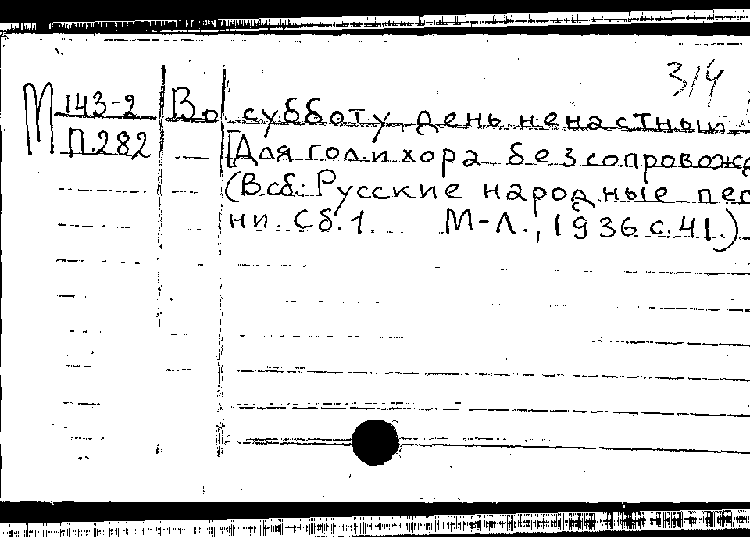 3/4
М 143-2 Во субботу день ненастный
П.282 [Для гол. и хора без сопровожд
(В сб.: Русские народные пес
ни. Сб. 1. М-Л., 1936 с. 41.)